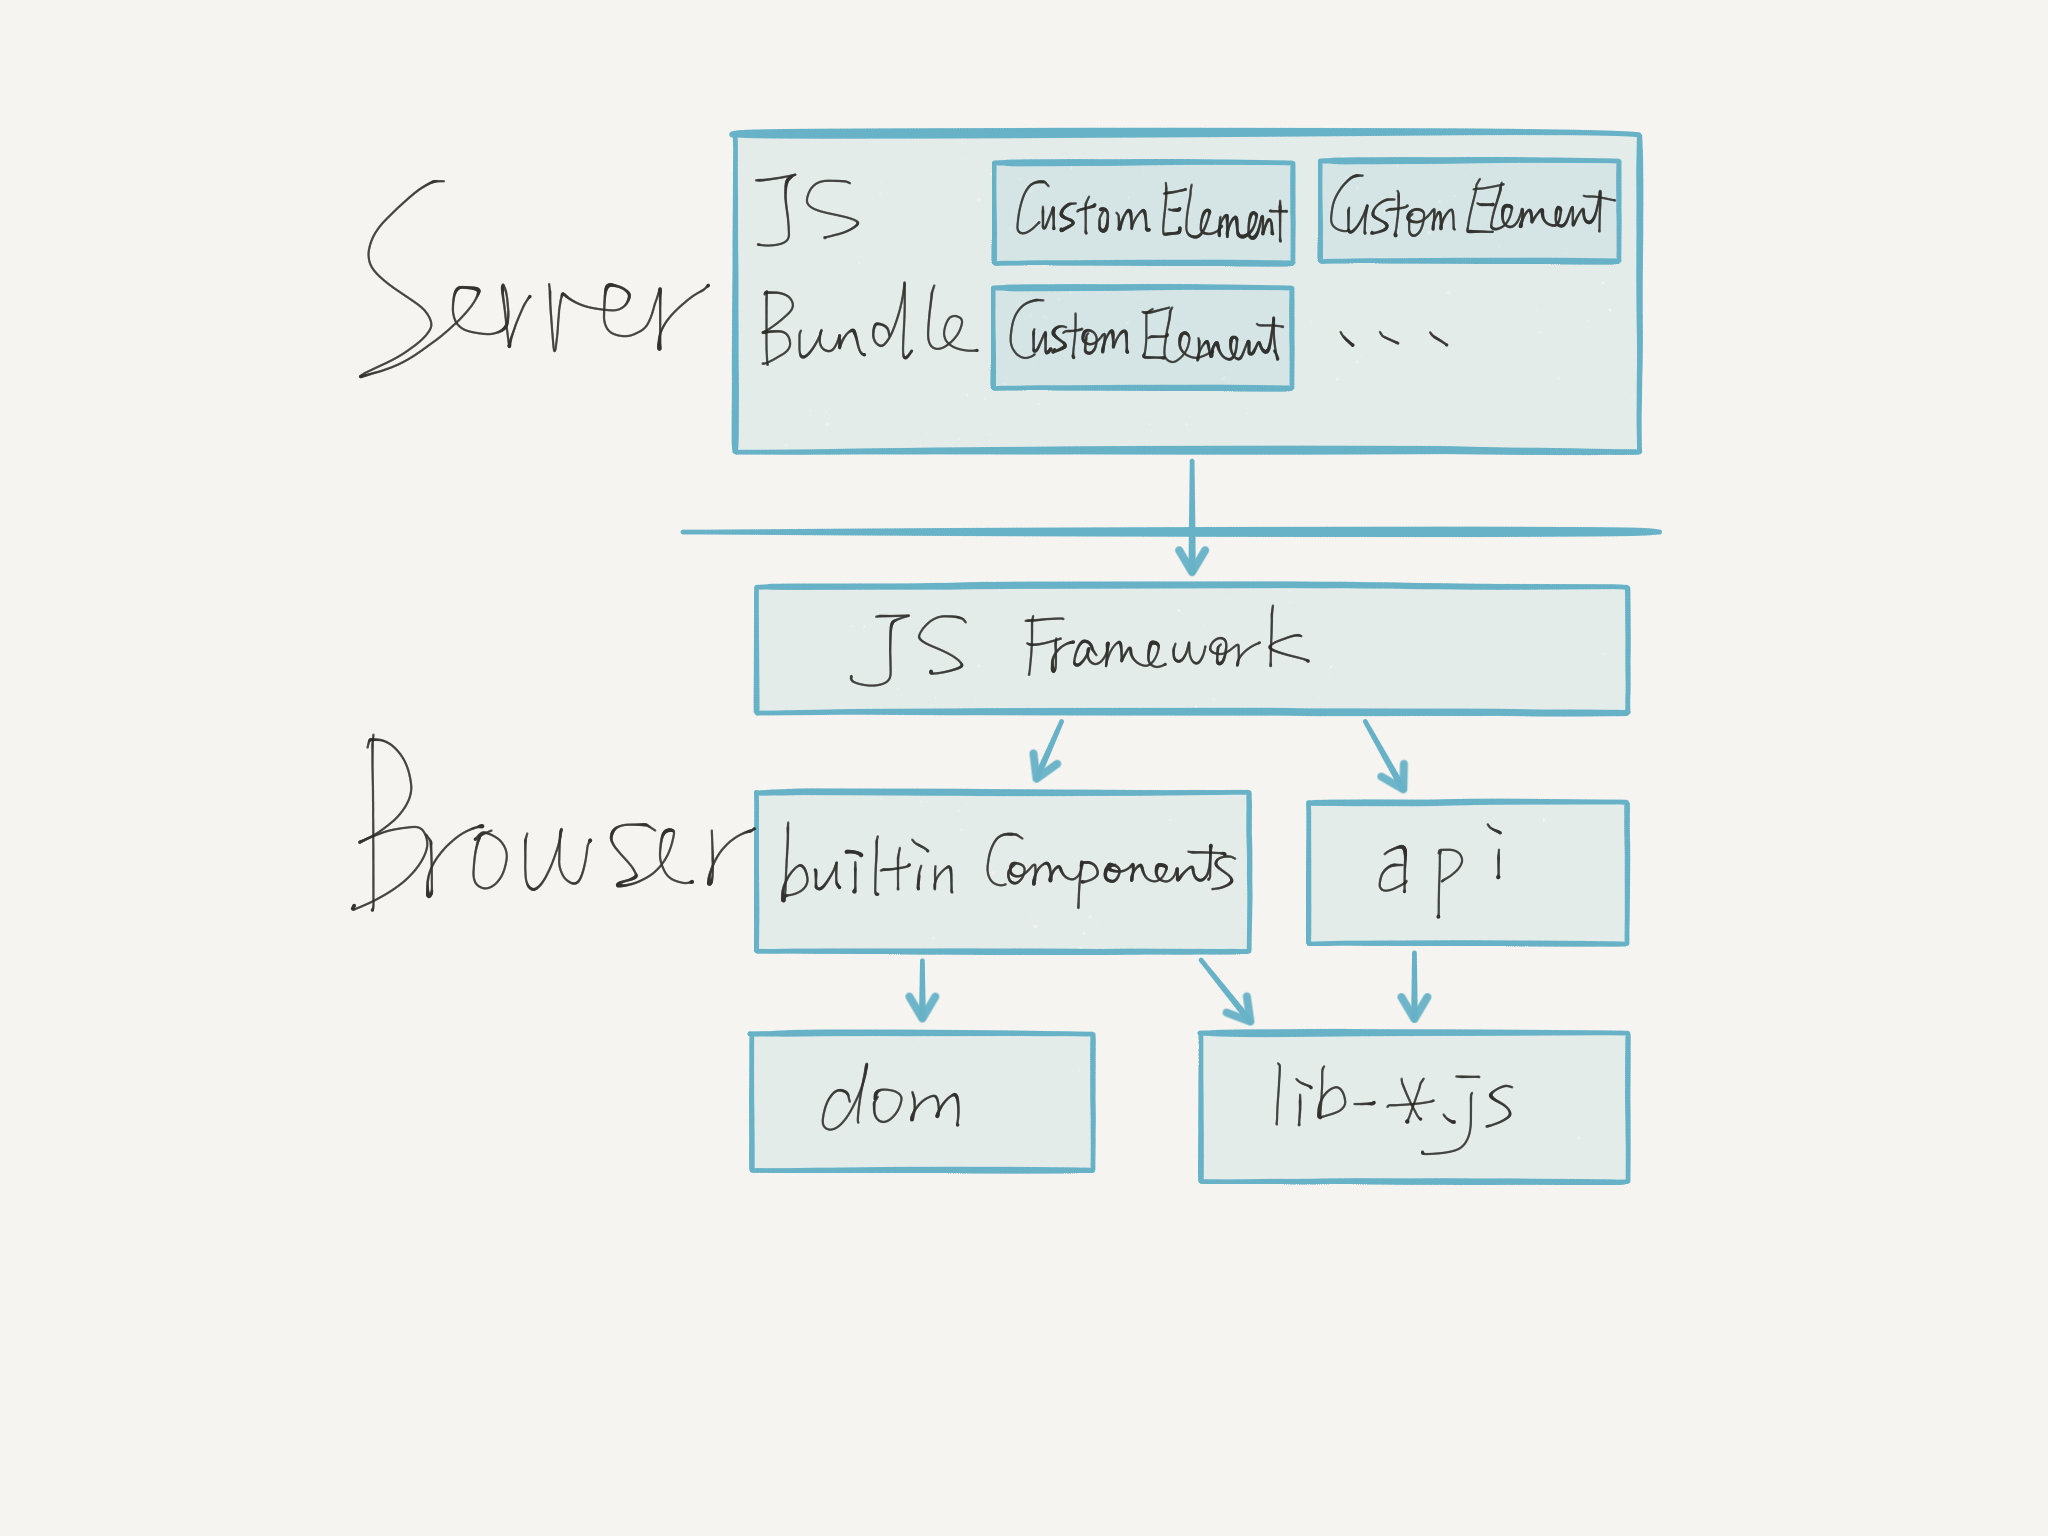 Server
JS
Bundle
CustomElement
CustomElement
CustomElement
...
JS Framework
Browser
builtin Components
api
dom
lib-*.js